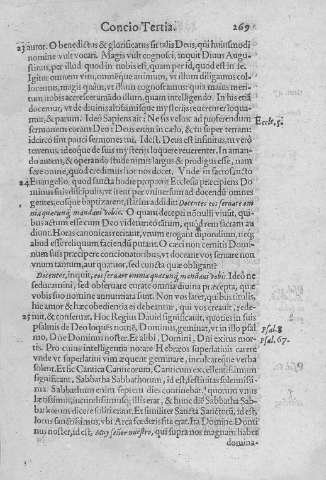 Concio Tertia. 269
23 autor. O benedictus & glorificatus sit talis Deus, qui huiusmodi
nomine vult vocari. Magis vult cognosci, inquit Diuus Augu-
stinus, per illud quod in nobis est, quam per id, quod est in se.
Igitur omnem vim, omnemque animum, vt illum diligamus col-
locemus, magis quàm, vt illum cognoscamus: quia maius meri-
tum nobis accrescet amādo illum, quam intelligendo. In his etiā
docemur, vt de diuinis altissimisque mysterijs reuerenter loqua-
mur, & parum. Ideò Sapiens ait: Ne sis velox ad proferendum
sermonem coram Deo: Deus enim in cælo, & tu super terram: Eccle. 5.
idcirco sint pauci sermones tui. Id est, Deus est infinitus, tu verò
terrenus, ideoque de suis mysterijs loquere reuerenter. In aman-
do autem, & operando stude nimis largus & prodigus esse, nam
fære omne, quod credimus hoc nos docet. Vnde in sacrosancto
24 Euangelio, quod sancta hodie proponit Ecclesia præcipiens Do-
minus suis discipulis, vt irent per vniuersum ad docendū omnes
gentes, eosque baptizarent, statim addidit: Docentes eos seruare om
nia quæcunq; mandaui vobis. O quam decepti nōnulli viuūt, qui-
bus actum esse cum Deo videtur eò
diont. Horas canonicas recitant, vnum erogant dipondium, neq;
aliud esse reliquum faciendū putant. O cæci non cernitis Domi-
num suis præcepere concionatoribus, vt doceant vos seruare non
vnum tantum, aut quatuor, sed cuncta quæ obligant?
Docentes, inquit, eos seruare omnia quæcunq; mandaui vobis. Ideò ne
seducamini, sed obseruare curate omnia diuina præcepta, quæ
vobis suo nomine annuntiata sunt. Non vos latet, quibus titulis,
hic amor & hæc obedientia ei debeantur, quia vos creauit, rede-
25 mit, & conseruat. Hoc Regius Dauid significauit, quoties in suis
psalmis de Deo loques nomē, Dominus, geminat, vt in illo psal- Psal. 8
mo, Domine Dominus noster. Et alibi, Domini, Dñi exitus mor- Psal. 67.
tis. Pro cuius intelligentia notate Hebræos superlatiuū carere
vnde vt superlatiui vim æquent geminare, inculcareque verba
solent. Et sic Cantica Canticorum, Canticum excellentissimum
significant, Sabbatha Sabbathorum, id est, festiuitas solemnissi-
ma. Sabbathum enim septem dies continebat, quorum vnus
lætissimus, iucundissimusque illis erat, & hunc diē Sabbatha Sab-
bathorum dicere solebant. Et similiter Sancta Sanctorū, id est,
locus sanctissimus, vbi Arca fœderis sita erat. Ita Domine Domi
nus noster, id est, muy señor nuestro, qui supra nos magnam habet
domina-